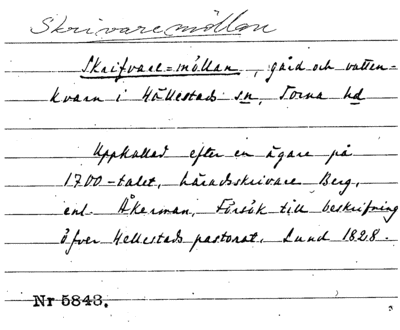 Skrivaremöllan
Skrifvare-möllan, gård och vatten-
kvarn i Hällestads sn, Torna hd
Uppkallad efter en ägare på
1700-talet, häradsskrivare Berg,
enl. Åkerman, Försök till beskrifning
öfver Hellestads pastorat. Lund 1828.
Nr 5843.